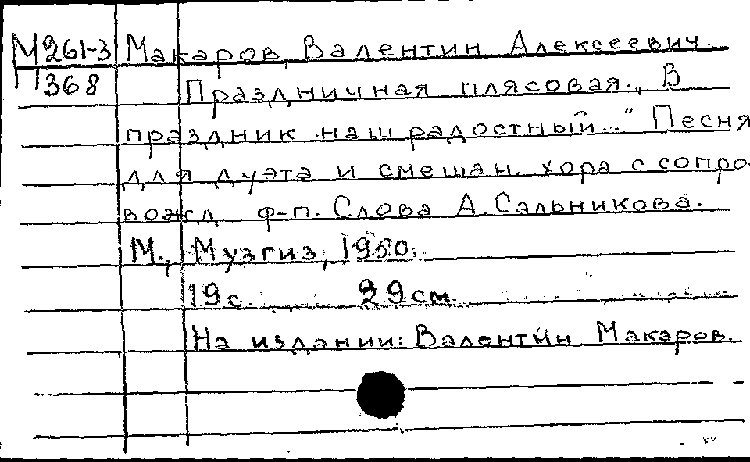 М261-3 Макаров, Валентин Алексеевич
П368 Праздничная плясовая. „В
праздник наш радостный..." Песня
для дуэта и смешан. хора с сопро-
вожд. ф-п. Слова А. Сальникова.
М., Музгиз, 1950.
19с. 29см.
На издании: Валентин Макаров.